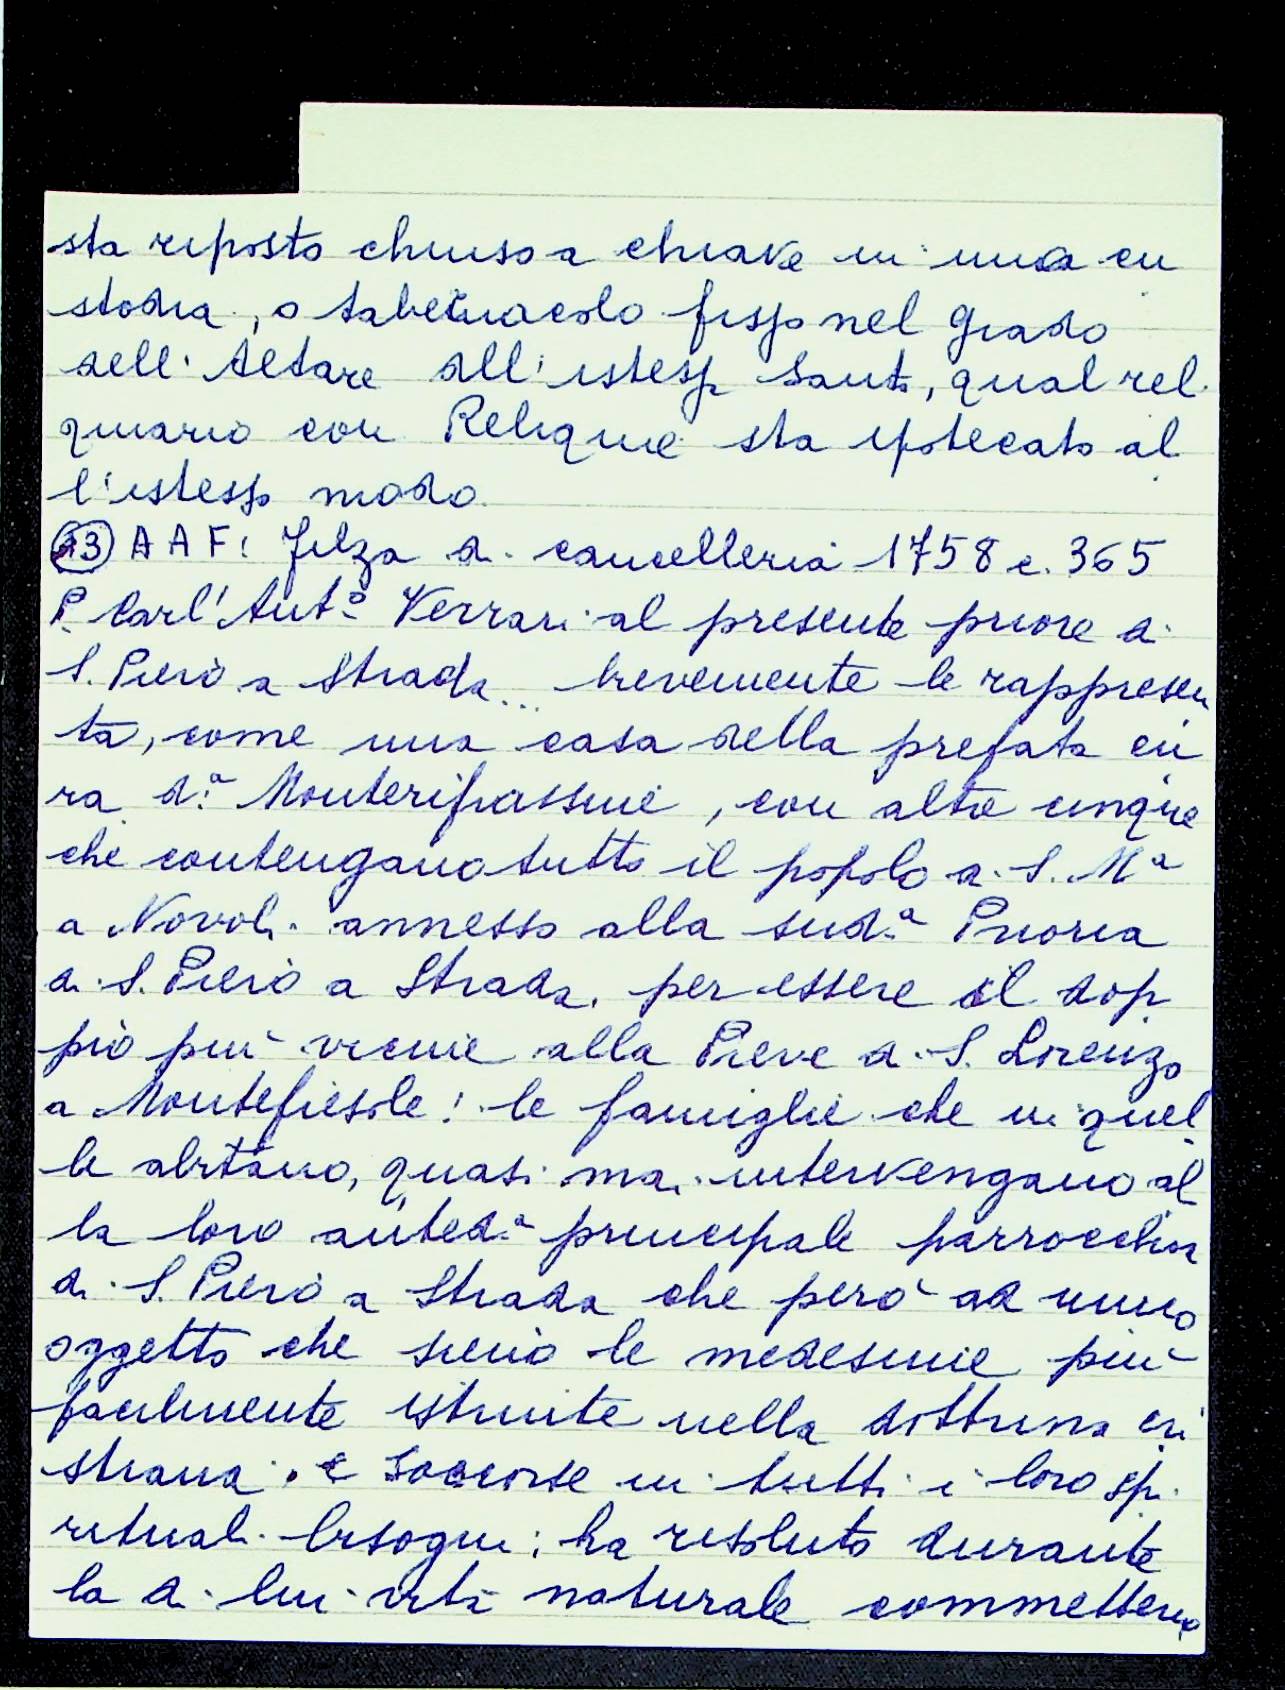 sta riposto chiuso a chiave in una cu
stodia, o tabernacolo fisso nel grado
dell'Altare dell'istessi Santi, qual reli
quiario con Reliquie sta ipotecato al
l'istesso modo
(23) AAF: Filza di cancelleria 1758 c. 365
P. Carl'Ant.º Verrari al presente priore di
S. Piero a Strada... brevemente le rappresen
ta, come una casa della prefata cu
ra d.ª Monteripassine, con altre cinque
che contengano tutto il popolo di S. Mª
a Novoli annesso alla sud.ª Prioria
di S. Piero a Strada, per essere il dop
pio più vicine alla Pieve di S. Lorenzo
a Montefiesole: le famiglie che in quel
le abitano, quasi mai intervengano al
la loro anted.ª principale parrocchia
di S. Piero a Strada che però ad unico
oggetto che sieno le medesime più
facilmente istruite nella dottrina cri
stiana, e soccorse in tutti i loro spi
rituali bisogni; ha resoluto durante
la di lui vita naturale commettere